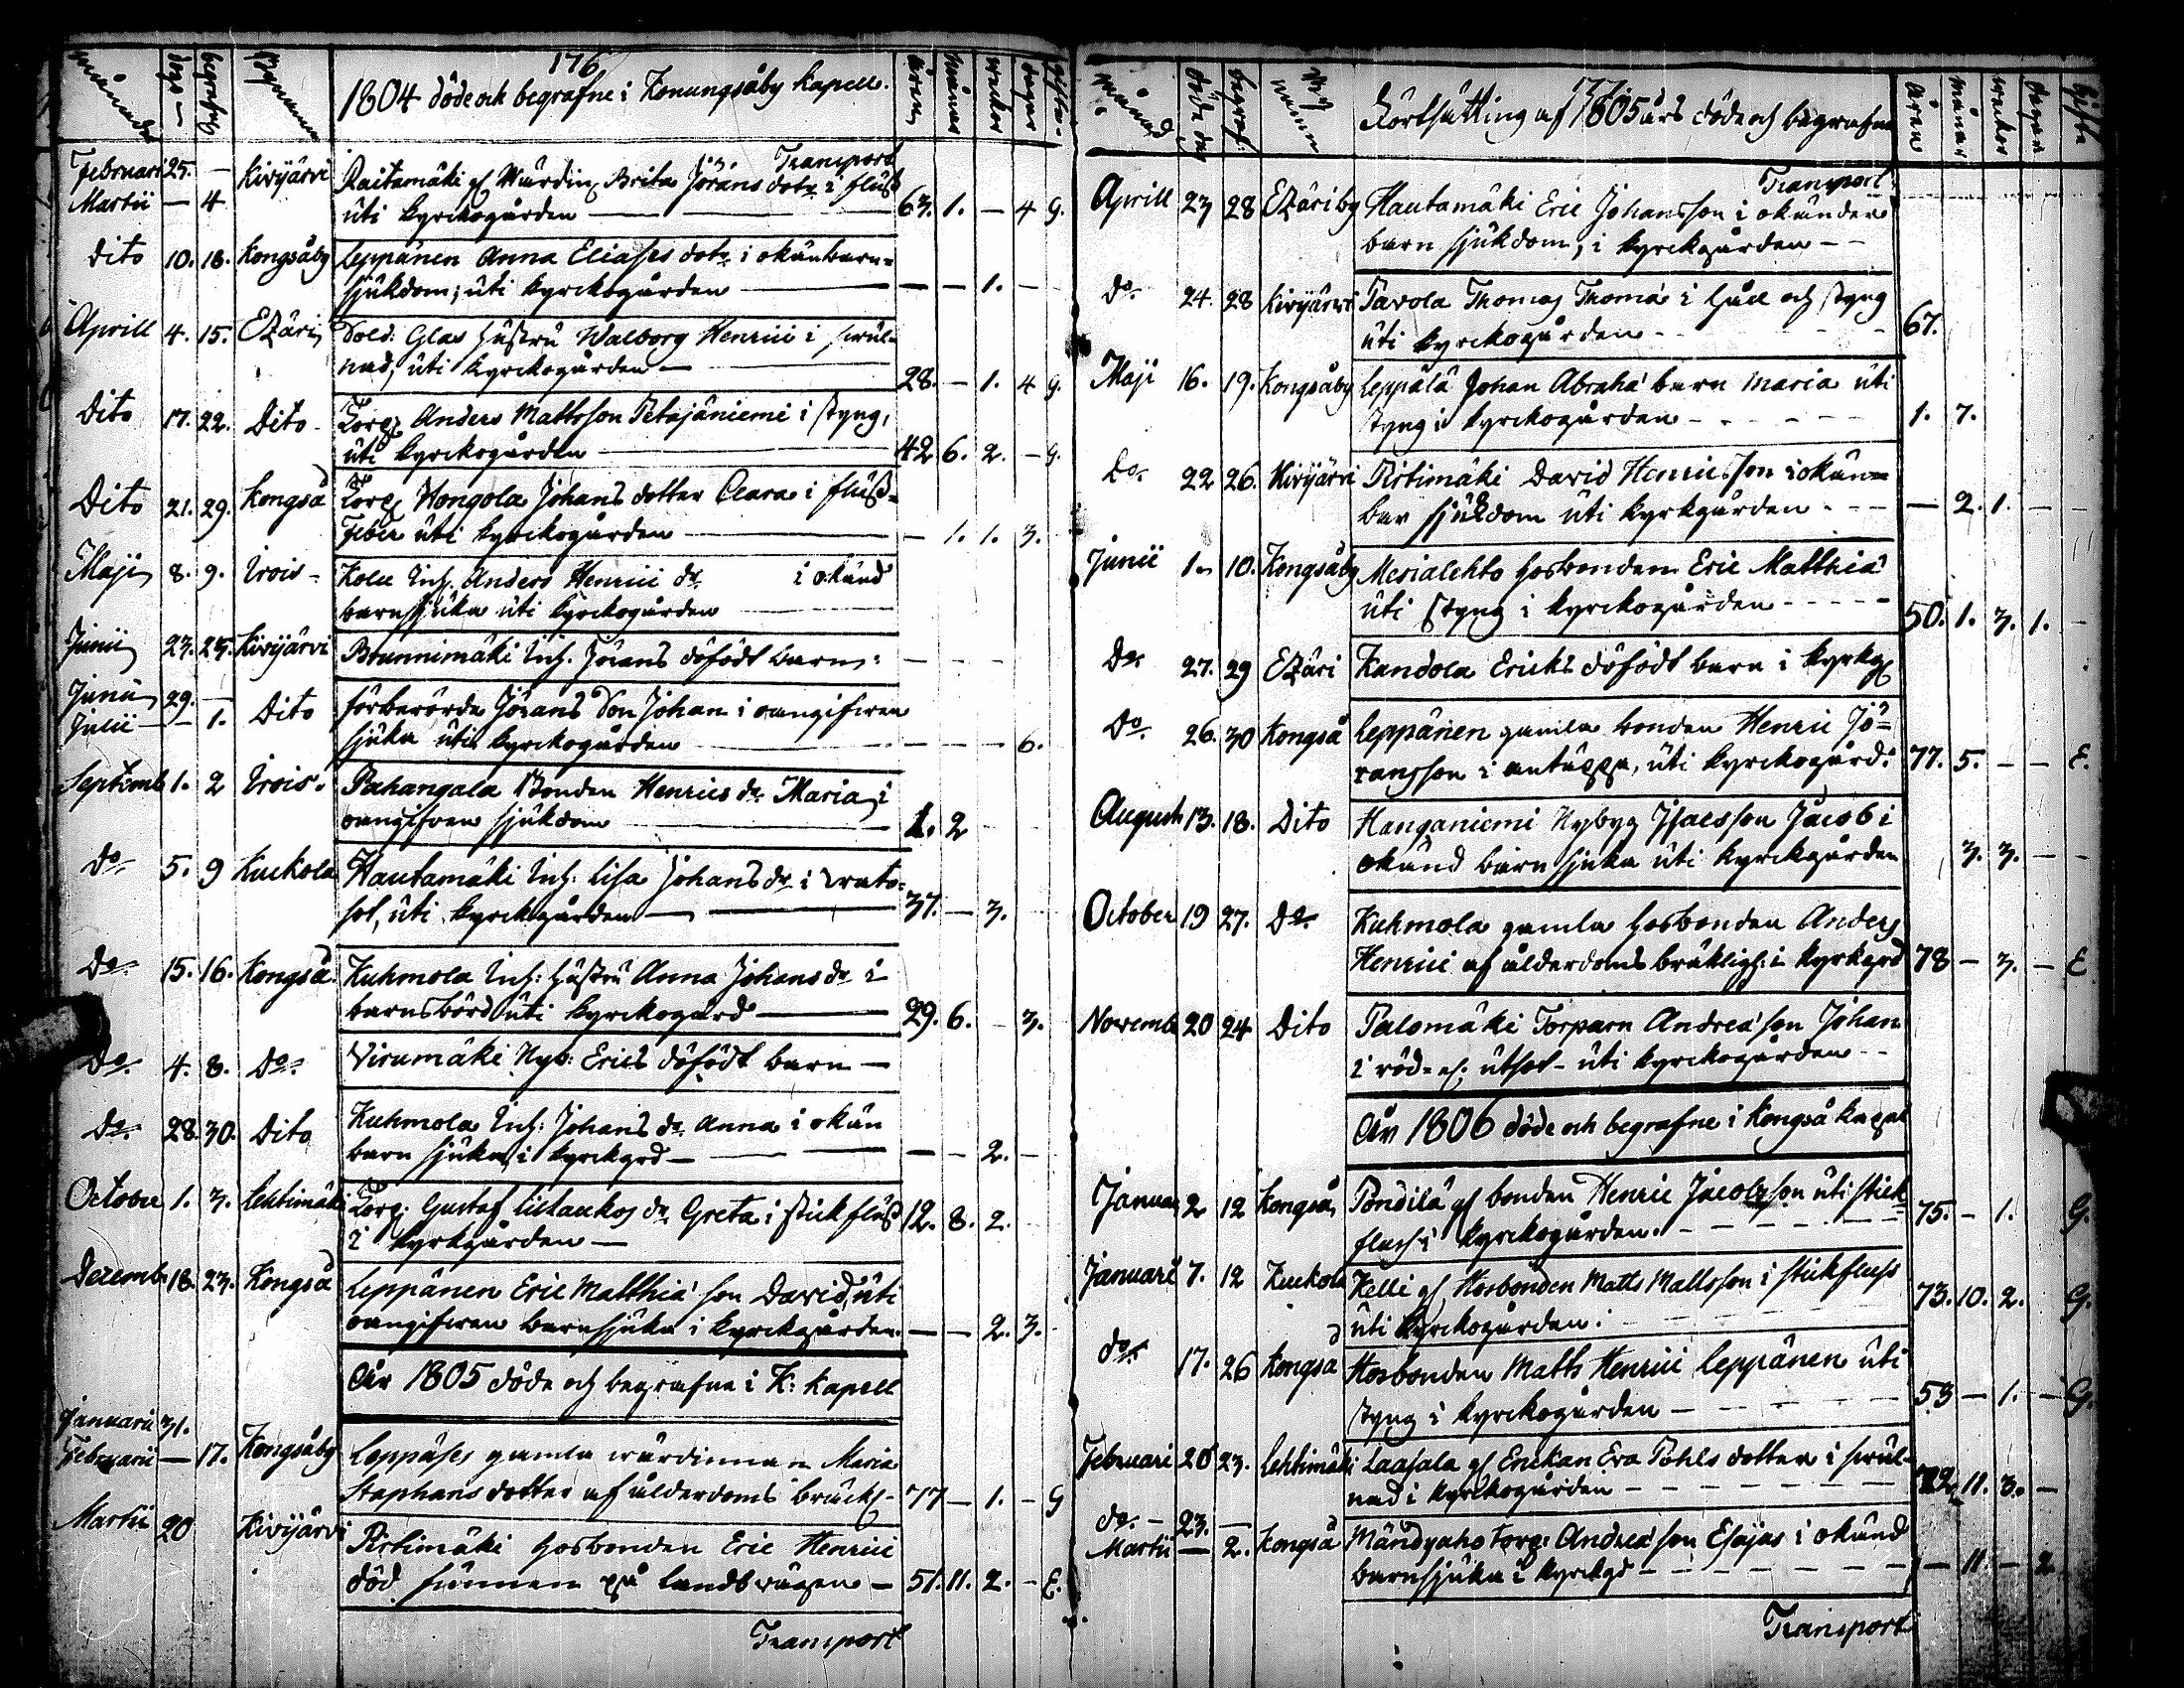 176
månader döge begrafs Bynamn 1804 döde och begrafne i Konungsåby Kapell. åren månar weckor dagar gifta
Transport
Februari 25. — Kivijärvi Raitamäki gl. Wärdin Brita Jörans dotr i fluss
Martii — 4 uti kyrckogården — 63. 1. — 4 G.
Dito 10. 18. Kongsåby Leppänen Anna Eliases dotr i okän barn-
sjukdom; uti kyrckogården — — — 1. —
Aprill 4. 15. Etzäri Sold: Glas hustru Walborg Henrici i swul-
nad, uti kyrckogården — 28. — 1. 4 G.
Dito 17. 22. Dito Torp Anders Mattsson Petajäniemi i styng,
uti kyrckogården 42 6. 2. — G.
Dito 21. 29. Kongså Torp Hongola Johans dotter Clara i fluss-
Feber uti kyrckogården — 1. 1. 3.
Maji 8. 9. Irois Inh. Anders Henrici dr i okänd
barnsjuka uti kyrckogården
Junii 23. 25. Kivijärvi Brunnimäki Inh. Jörans dödfödt barn:
Junii 29. — Dito förberörde Jörans Son Johan i oangifven
Julii — 1. sjuka uti kyrckogården — — — 6.
Septemb 1. 2 Irois. Pahangala Bonden Henrics dr Maria i
oangifven sjukdom 1. 2
Do 5. 9 Kuckola Hautamäki Inh: Lisa Johans dr i
sot, uti kyrckogården — 37. — 3.
Do 15. 16. Kongså. Kuhmola Inh: hustru Anna Johans dr i
barnsbörd uti kyrckogård — 29. 6. — 3.
Do. 4. 8. Do. Virumäki Nyb: Erics dödfödt barn —
Do. 28. 30. Dito Kuhmola Inh: Johans dr Anna i okän
barn sjuka i kyrckgrd — — — 2. —
October 1. 3. Lehtimäki Torp: Gustaf dr Greta i stickfluss 12. 8. 2.
i kyrkgården —
Decemb 18. 23. Kongså Leppänen Eric Matthiæ son David, uti
oangifven barnsjuka i kyrckgården. — — 2. 3.
Åv 1805 döde och begrafne i K: Kapell
Januarii 31.
Februarii — 17. Kongsåby Leppäses gamla wärdinna Maria
Staphans dotter af ålderdoms bräckl- 77 — 1. — G
Martii 20 Kivijärvi Pirtimäki hosbonden Eric Henrici
död funnen på landsvägen — 51. 11. 2. — E.
Transport
177.
Månad döde begraf: By namn Fortsätting af 1805 års döde och begrafne åren månar weckor dagar Gifta
Transport
Aprill 23 28 Etzäri by Hautamäki Eric Johansson i okänder
barn sjukdom, i kyrckgården — —
Do. 24. 28 Kivijärvi Pavola Thomas Thomæ i håll och styng
uti kyrckogården 67.
Maji 16. 19. Kongsåby Leppälä Johan Abrahæ barn Maria uti
styng i kyrckogården 1. 7.
Do. 22 26. Kivijärvi Pirtimäki David Henricsson i okän-
bar sjukdom uti kyrkgården — 2. 1. — —
Junii 1 10. Kongsåby Merialehto hosbonden Eric Matthiæ
uti styng i kyrckogården 50. 1. 3. 1. —
Do 27. 29 Etzäri Kandola Ericks dödfödt barn i kyrkg
Do 26. 30 Kongså Leppänen gamla bonden Henric Jö-
ransson i andtäppa, uti kyrckogård: 77. 5. — — E.
August 13. 18. Dito Hanganiemi Nybyg Isacsson Jacob i
okänd barnsjuka uti kyrckgården 3. 3. — —
October 19 27. Do. Kuhmola gamla hosbonden Anders
Henrici af ålderdoms bräkligh: i kyrkgrd 78 — 3. — E
Novemb 20 24 Dito Palomäki Torparn Andreæ son Johan
i röd- utsot- uti kyrckogården — —
Åv 1806 döde och begrafne i Kongså Kapel
Januar 2 12 Kongså Pondilä gl bonden Henric Jacobsson uti stick
fluss i kyrckogården. 75. — 1. G.
Januari 7. 12 Kuckola Kelli gl Hosbonden Matts Mattsson i stickfluss
uti kyrckogården: 73. 10. 2. G.
do 17. 26 Kongså Hosbonden Matts Henrici Leppänen uti
styng i kyrckogården — 53 — 1. — G.
Februari 20 23. Lehtimäki Laasala gl Enckan Eva Påhls dotter i swul-
nad i kyrckogården 72. 11. 3. —
do. — 23. —
Martii — 2. Kongså Mändyaho torp: Andreæ son Esajas i okänd
barnsjuka i kyrckgd — 11 — 2
Transport